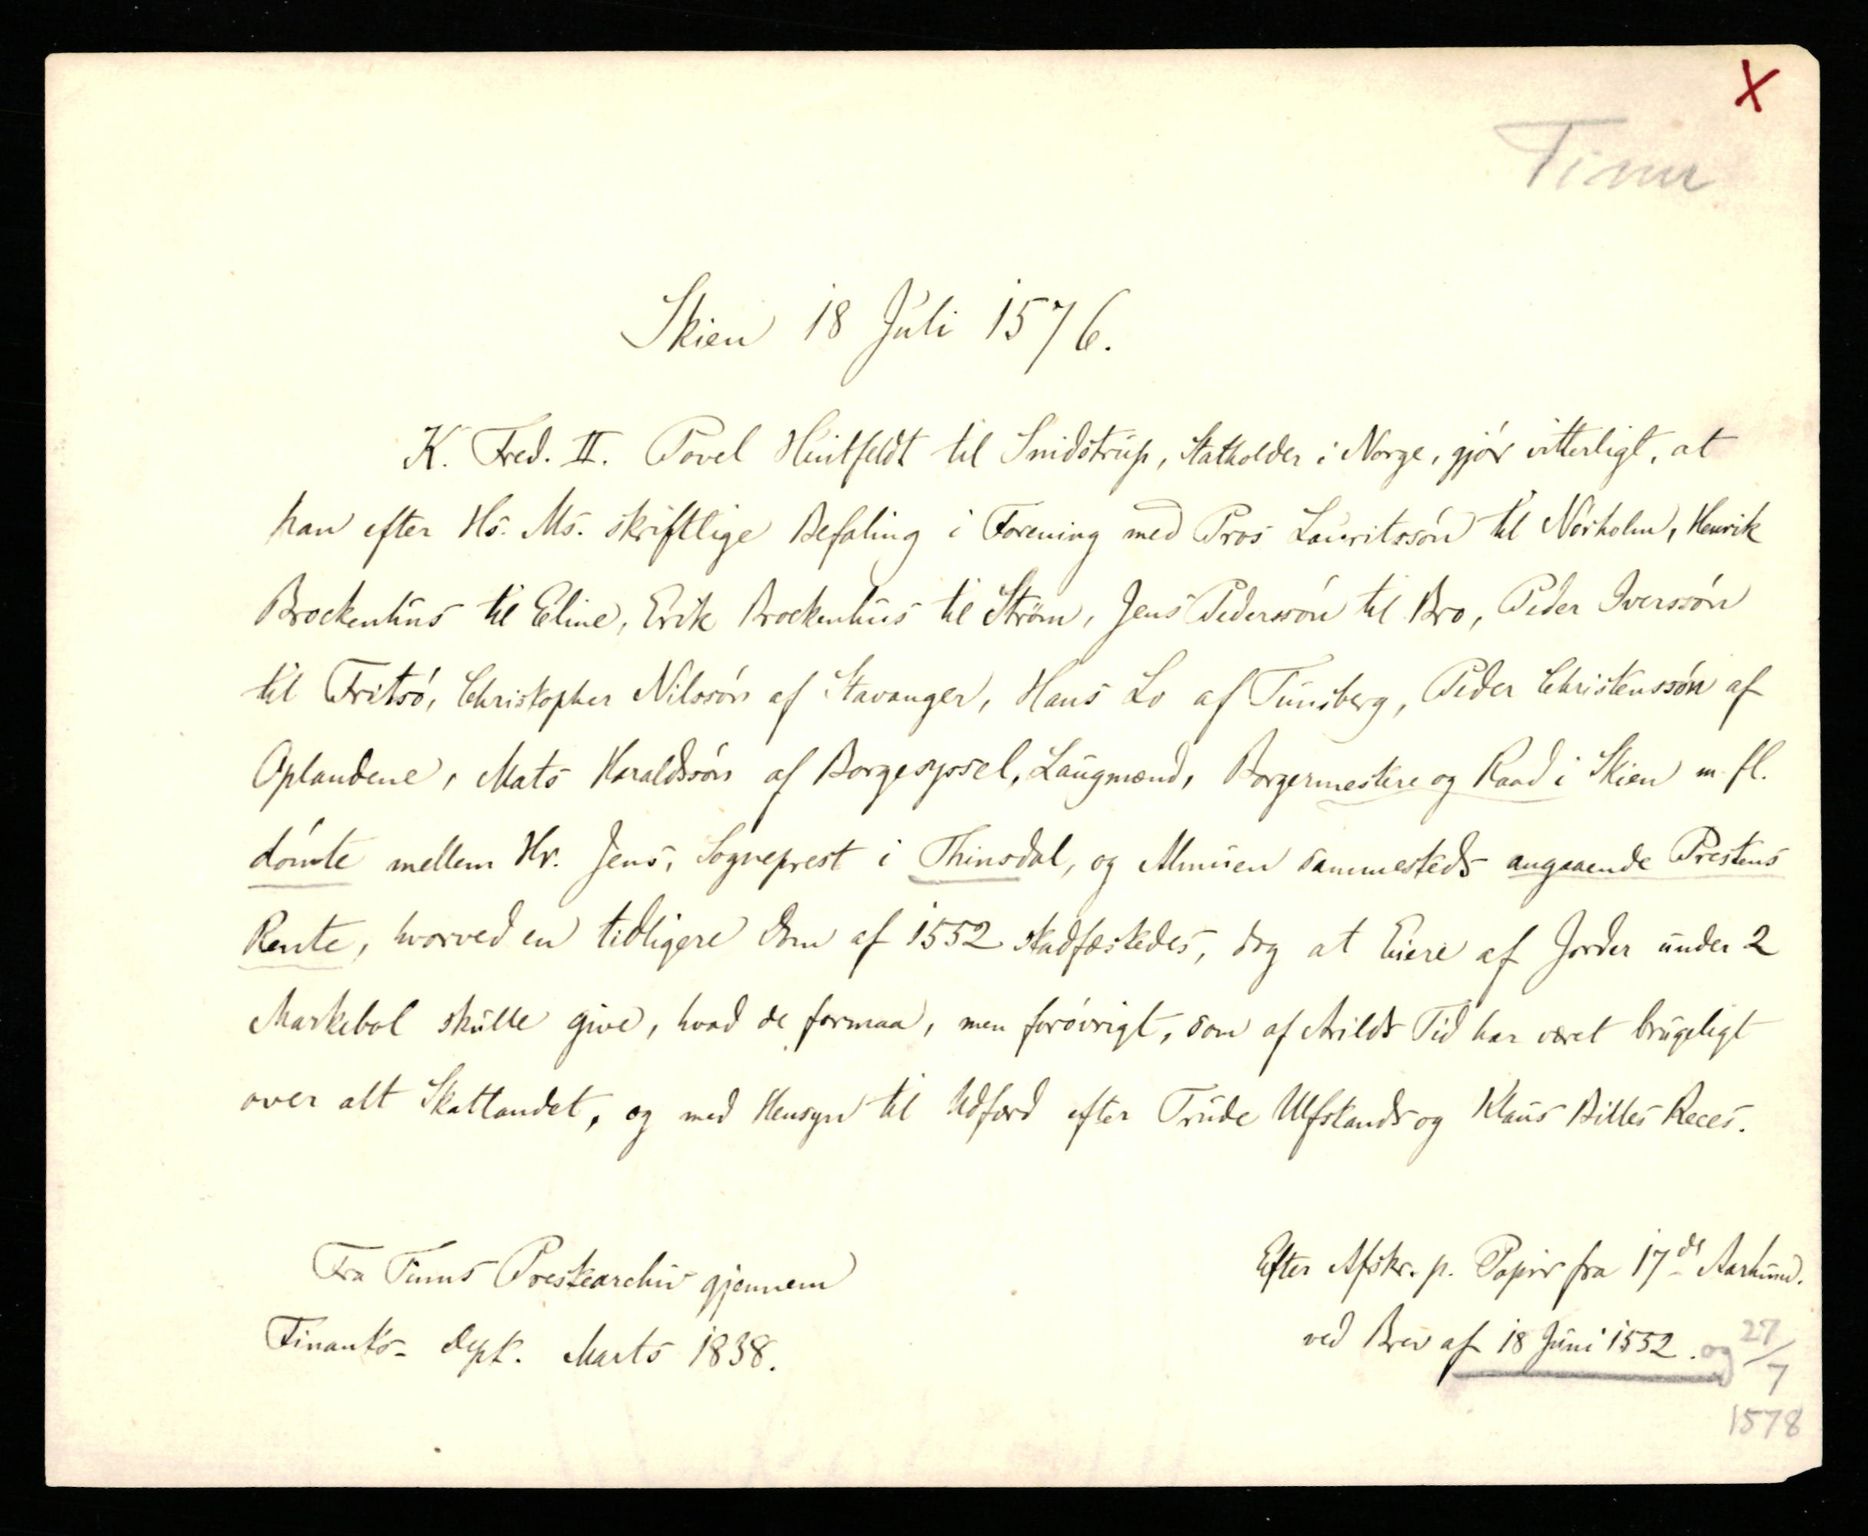 X
Tinn
Skien 18 Juli 1576.
K. Fred. II. Povel Huitfeldt til Snidstrup, Statholder i Norge, gjör vitterligt, at
han efter Hs. Ms. skriftlige Befaling i Forening med Pros Lauritssön til Nörholm, Henrik
Brockenhus til Eline, Erik Brockenhus til Ström, Jens Pederssön til Bro, Peder Iverssön
til Fritsö, Christopher Nilssön af Stavanger, Hans Lo af Tunsberg, Peder Christenssön af
Oplandene, Mats Haraldssön af Borgesyssel, Laugmænd, Borgermestere og Raad i Skien m. fl.
dömte mellem Hr. Jens, Sogneprest i Thinsdal, og Almuen sammesteds angaaende Prestens
Rente, hvorved en tidligere Dom af 1552 stadfæstedes, dog at Eiere af Jorder under 2
Markebol skulle give, hvad de formaa, men forövrigt, som af Arilds Tid har været brugeligt
over alt Skatlandet, og med Hensyn til Udfærd efter Trude Ulfstands og Klaus Billes Reces.
Fra Tinns Prestearchiv gjennem
Finants- Dept. Marts 1838.
Efter Afskr. p. Papir fra 17de Aarhund.
ved Brev af 18 Juni 1552. og 27/7
1578